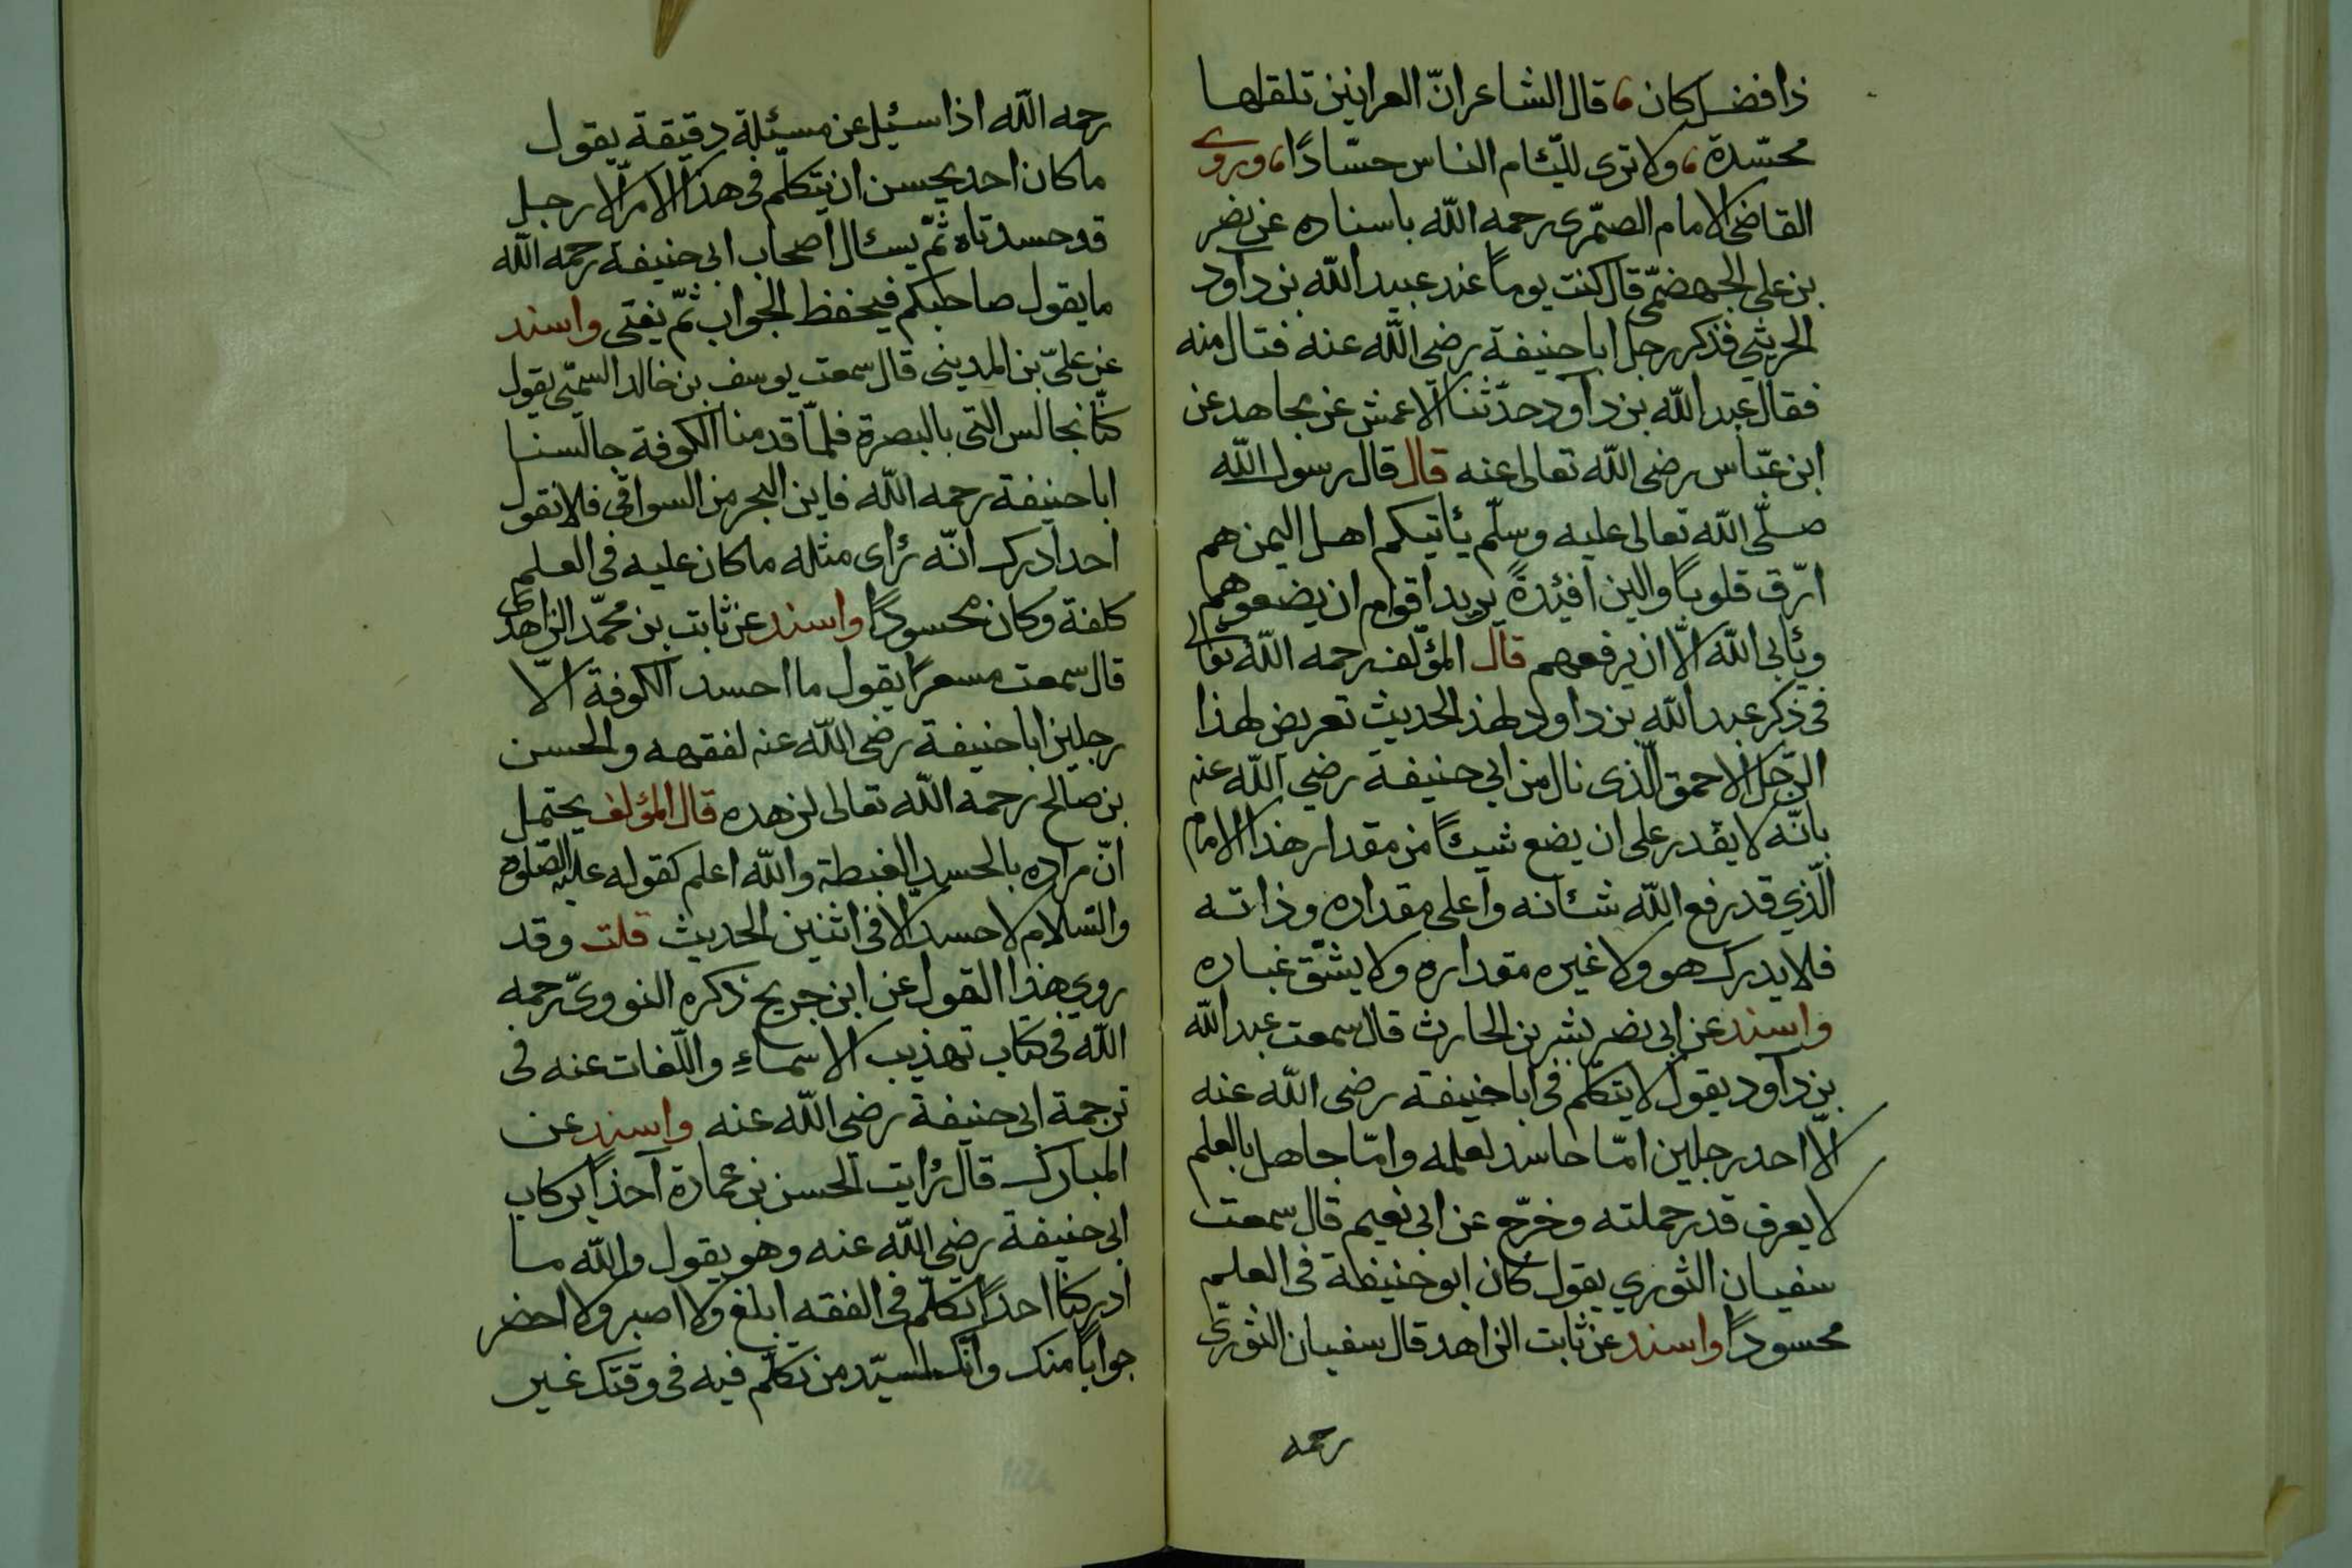 ذا فضل كان ، قال الشاعر انّ العرانين تلقاها
محسّدة ، ولا ترى للئام الناس حسّادًا ، وروى
القاضى الامام الصيمرى رحمه الله باسناده عن نضر
بن على الجهضمى قال كنت يومًا عند عبيد الله بن داود
الحريثي فذكر رجل ابا حنيفة رضى الله عنه فنال منه
فقال عبد الله بن داود حدّثنا الاعمش عن مجاهد عن
ابن عبّاس رضى الله تعالى عنه قال قال رسول الله
صلّى الله تعالى عليه وسلّم يأتيكم اهل اليمن هم
ارّق قلوبًا والين افئدةً يريد اقوام ان يضعوهم
ويأبى الله الّا ان يرفعهم قال المؤلف رحمه الله تعالى
فى ذكر عبد الله بن داود لهذ الحديث تعريض لهذا
الرّجل الاحمق الّذى نال من ابي حنيفة رضي الله عنه
بانّه لا يقدر على ان يضع شيئًا من مقدار هذا الامام
الّذي قد رفع الله شأنه واعلى مقداره وذاته
فلا يدرك هو ولا غيره مقداره ولا يشقّ غباره
واسند عن ابى نصر بشر بن الحارث قال سمعت عبد الله
بن داود يقول لا يتكلّم فى ابا حنيفة رضى الله عنه
الّا احد رجلين امّا حاسد لعلمه وامّا جاهل بالعلم
لا يعرف قدر حملته وخرّج عن ابى نعيم قال سمعت
سفيان الثوري يقول كان ابو حنيفة فى العلم
محسودًا واسند عن ثابت الزاهد قال سفيان الثورى
رحمه
رحمه الله اذا سئل عن مسئلة دقيقة يقول
ما كان احد يحسن ان يتكلّم فى هذا الامر الّا رجل
قد حسدناه ثمّ يسئال اصحاب ابى حنيفة رحمه الله
ما يقول صاحبكم فيحفظ الجواب ثمّ يفتى واسند
عن علىّ بن المدينى قال سمعت يوسف بن خالد السمتى يقول
كنّا نجالس التى بالبصرة فلمّا قدمنا الكوفة جالسنا
ابا حنيفة رحمه الله فاين البحر من السواقى فلا نقول
احدا درك انّه رأى مثله ما كان عليه فى العلم
كلفة وكان محسودًا واسند عن ثابت بن محمّد الزاهدى
قال سمعت مسعرًا يقول ما احسد الكوفة الّا
رجلين ابا حنيفة رضى الله عنه لفقهه والحسن
بن صالح رحمه الله تعالى لزهده قال المؤلف يحتمل
انّ مراده بالحسد الغبطة والله اعلم كقوله عليه الصّلوة
والسّلام لا حسد الّا فى اثنين الحديث قلت وقد
روي هذا القول عن ابن جريج ذكره النووىّ رحمه
الله فى كتاب تهذيب الاسماء واللّغات عنه فى
ترجمة ابى حنيفة رضى الله عنه واسند عن
المبارك قال رأيت الحسن بن عمارة آخذًا بركاب
ابى حنيفة رضى الله عنه وهو يقول والله ما
ادركنا احدًا تكلّم فى الفقه ابلغ ولا اصبر ولا احضر
جوابًا منك وانّك لسيّد من تكلّم فيه فى وقتك غير